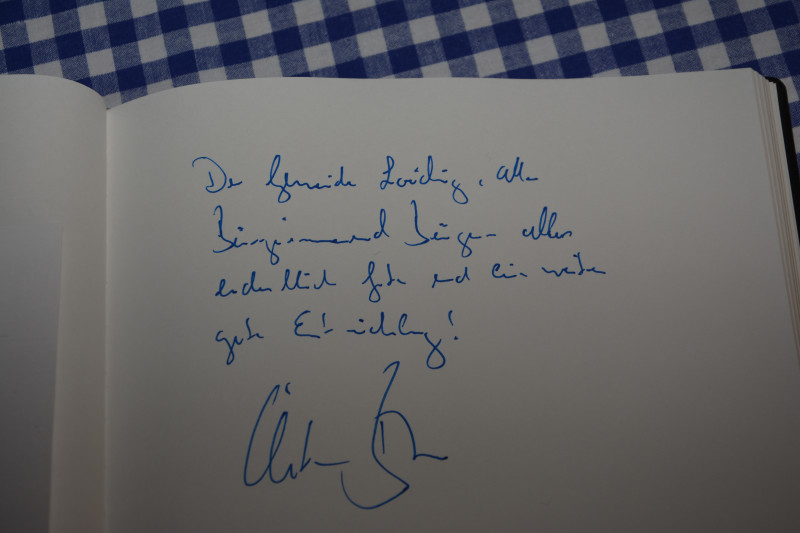 Der Gemeinde Loiching, allen
Bürgerinnen und Bürgern alles
erdenklich Gute und eine weiter
gute Entwicklung!